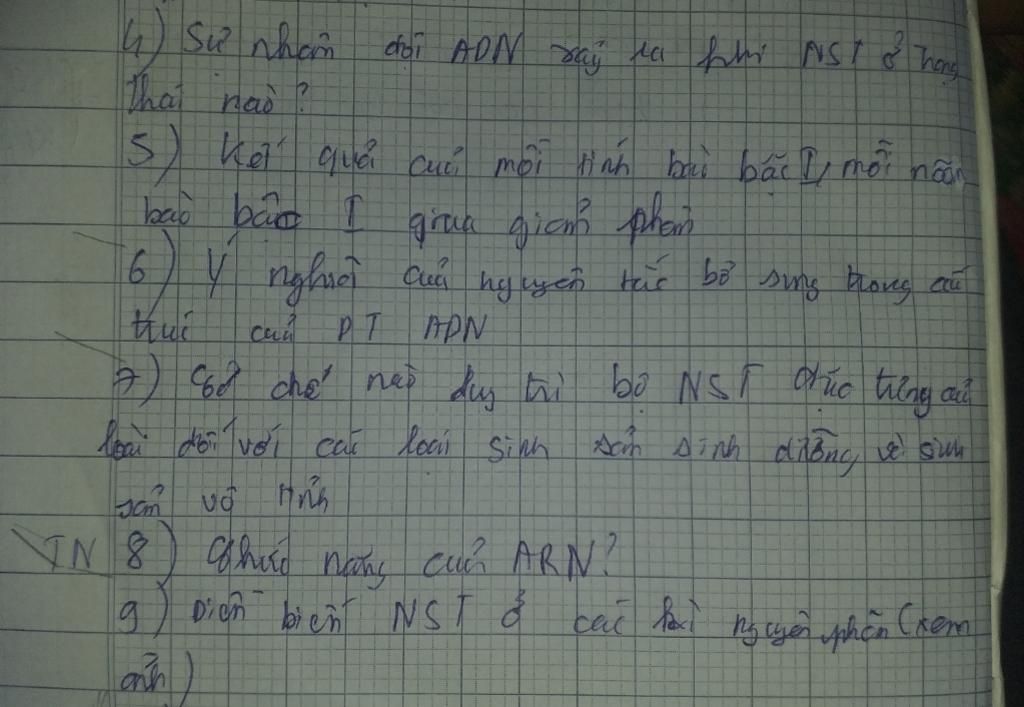 4) Sự nhân đôi ADN xảy ra khi NST ở trạng
thái nào?
5) Kết quả của mỗi tinh bào bậc I, mỗi noãn
bào bậc I qua giảm phân
6) Ý nghĩa của nguyên tắc bổ sung trong cấu
trúc của PT ADN
7) Cơ chế nào duy trì bộ NST đặc trưng của
loài đối với các loài sinh sản sinh dưỡng và sinh
sản vô tính
TN 8) Chức năng của ARN?
9) Diễn biến NST ở các kì nguyên phân (xem
ảnh)